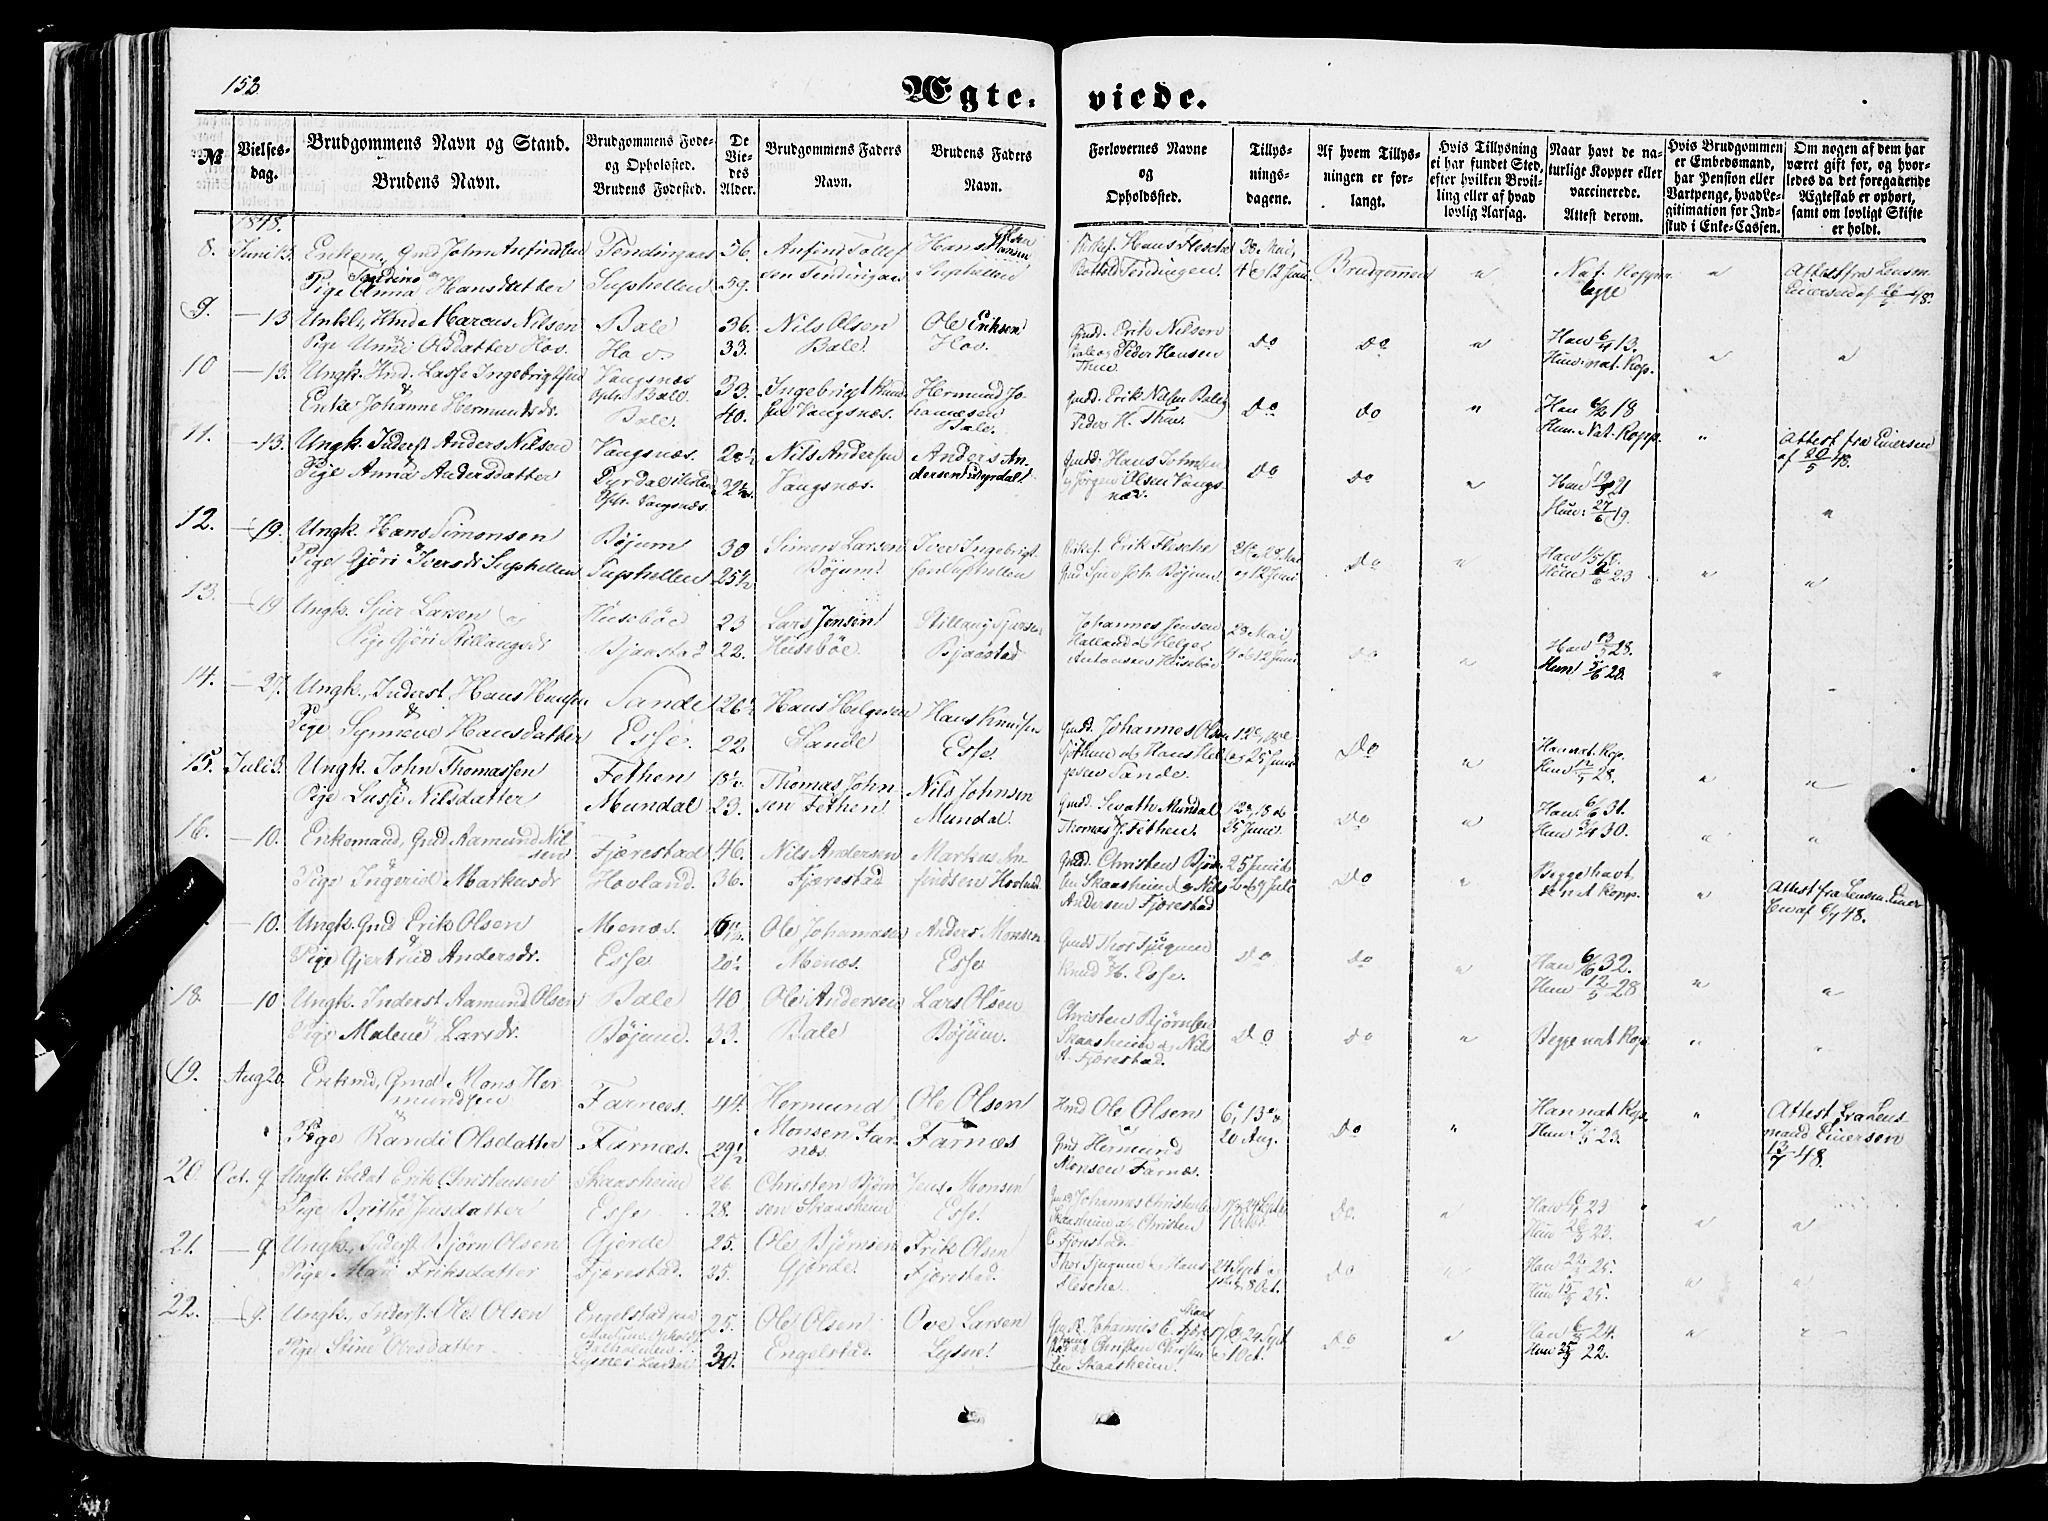 153.
Ægte- viede.
№
Vielses-
dag.
Brudgommens Navn og Stand.
Brudens Navn.
Brudgommens Føde-
og Opholdsted.
Brudens Fødested.
De
Vie-
des
Alder.
Brudgommens Faders
Navn.
Brudens Faders
Navn.
Forlovernes Navne
og
Opholdsted.
Tillys-
nings-
dagene.
Af hvem Tillys-
ningen er for-
langt.
Hvis Tillysning
ei har fundet Sted,
efter hvilken Bevil-
ling eller af hvad
lovlig Aarsag.
Naar havt de na-
turlige Kopper eller
vaccinerede.
Attest derom.
Hvis Brudgommen
er Embedsmand,
har Pension eller
Vartpenge, hvad Le-
gitimation for Ind-
skud i Enke-Cassen.
Om nogen af dem har
været gift før, og hvor-
ledes da det foregaaende
Ægteskab er ophørt,
samt om lovligt Skifte
er holdt.
1848.
8. Juni 13. Enkem. Gmd John Anfindsen
Pige Anna Hansdatter
Suphellen
56.
59.
Hans Hansen
Suphellen
28 Mai,
4 & 12 Juni
Brudgommen
"
Nat. Kopper
begge
"
Attest fra Lensm.
9. —13 Ungk. Hmd Marcus Nilsen
Pige Unni Olsdatter Hov.
Bale
Hov.
36.
33.
Nils Olsen
Bale.
Ole Eriksen
Hov.
Gmd. Erik Nilsen
Bale og Peder Hansen
Thue.
Do
Do
"
Han 6/4 13.
Hun nat. Kop.
"
"
10 —13. Ungk. Hmd. Lasse Ingebrigtsen
&
Enke Johanne Hermundsdr.
Vangsnæs
Oph. Bale.
Bale.
33.
40.
Ingebrigt Knud-
sen Vangsnæs.
Hermund Jo-
hannesen
Bale.
Gmd. Erik Nilsen Bale &
Peder H. Thue.
Do
Do
"
Han 6/2 18
Hun Nat. Kopp.
"
Attest fra Eiersen
af 20/5 48.
11. —13. Ungk. Inderst Anders Nilsen
Pige Anna Andersdatter
Vangsnæs.
Oph. Vangsnæs.
Nils Andersen
Vangsnæs.
Anders An-
dersen
Gmd. Hans Johnsen
& Jørgen Olsen Vangs-
næs.
Do
Do
"
Hun 27/6 19.
"
12. —19. Ungk. Hans Simonsen
&
Pige Gjøri Iversdr Suphellen
Bøjum
Suphellen
30
25½
Simon Larsen
Bøjum.
Iver Ingebrigt-
sen Suphellen
Erik Flesche
og 12 Juni
Do
"
"
"
13. —19 Ungk. Sjur Larsen og
Pige Gjøri Stillaugsdr
Husebøe
Bjaastad
23
22.
Lars Jensen
Husebøe
Stillaug Sjursen
Bjaastad
Johannes Jensen
Halland & Helge
Antonsen Husebøe
28 Mai,
4 & 12 Juni
Do
"
Han 13/5 28.
Hun 5/6 28.
"
"
14. —27. Ungk. Inderst Hans Hansen
&
Pige Synneve Hansdatter
Sande
Esse.
26½
22.
Hans Helgesen
Sande
Hans Knudsen
Esse.
Gmd. Johannes Olsen
Hans Hel-
gesen Sande.
& 25 Juni
Do
"
Han nat. Kop.
Hun 12/5 28.
"
"
15. Juli 3. Ungk. John Thomassen
Pige Lasse Nilsdatter
Fethen
Mundal
18½
23.
Thomas John-
sen Fethen
Nils Johnsen
Mundal.
Gmd. Sevath Mundal
Thomas J. Fethen.
12, 18 &
25 Juni.
Do
"
Han 6/6 31.
Hun 3/4 30.
"
"
16. —10. Enkemand, Gmd Aamund Nil-
sen
&
Pige Ingerid Markusdr
Fjærestad
Hovland.
46.
36.
Nils Andersen
Fjærestad
Markus An-
findsen Hovland
Gmd. Christen Bjørn-
sen Skaasheim & Nils
Andersen Fjærestad
25 Juni &
2 & 9 Juli
Do
"
Begge havt
de nat Kopp.
"
Attest fra Lensm. Eier-
sen af 6/7 48.
—10. Ungk. Gmd Erik Olsen
&
Pige Gjertrud Andersdr.
Menæs.
Esse
20½
Ole Johannesen
Menæs.
Anders Monsen
Esse
Gmd Thor Tjugum
&
Knud H. Esse.
Do
Do
"
Han 6/6 32.
Hun 12/5 28
"
"
18. —10 Ungk. Inderst Aamund Olsen
&
Pige Malene Larsdr.
Bale
Bøjum.
40
33.
Ole Andersen
Bale
Lars Olsen
Bøjum.
Christen Bjørnsen
Skaasheim & Nils
A. Fjærestad.
Do
Do
"
Begge nat Kop.
"
"
19. Aug 20. Enkmd, Gmd Mons Her-
mundsen
&
Pige Randi Olsdatter
Farnæs.
Farnæs.
44.
29½
Hermund
Monsen Far-
næs.
Ole Olsen
Farnæs
Hmd Ole Olsen
&
Gmd Hermund
Monsen Farnæs.
6, 13 &
20 Aug.
Do
"
Han nat Kop.
"
Attest fra Lens-
mand Eiersen
13/7 48.
20. Oct. 9 Ungk. Soldat Erik Christensen
&
Pige Brithe Jensdatter
Skaasheim
Esse
26.
28.
Christen Bjørn-
sen Skaasheim
Jens Monsen
Esse.
Gmd Johannes Christensen
Skaasheim & Christen
17, 24 Sept &
1 Octbr.
Do.
"
"
"
21. —9 Ungk. Inderst Bjørn Olsen
&
Pige Mari Eriksdatter
Gjerde
Fjærestad.
25.
35.
Ole Bjørnsen
Gjerde.
Erik Olsen
Fjærestad.
Thor Tjugum & Hans
Flesche.
24 Sept &
1 & 8 Oct.
Do
"
"
"
22. —9. Ungk. Inderst. Ole Olsen
&
Pige Stine Ovesdatter
Engelstad
25.
Ole Olsen
Engelstad.
Ove Larsen
Lysne.
17 & 24 Sept
& 1 Oct.
Do
"
Han 6/5 24.
"
"